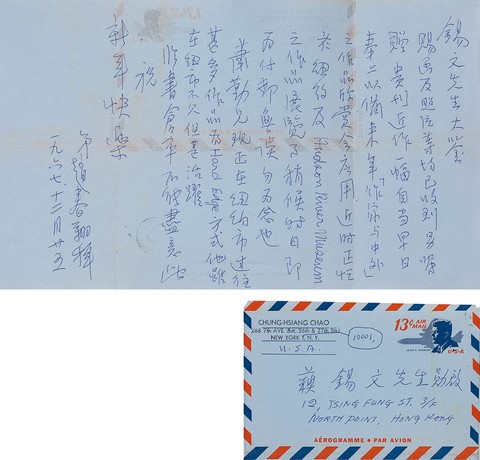 錫文先生大鑒
賜函及照片等均已收到另囑
贈貴刊近作一幅自當早日
奉上以備未年「作家与中外」
之作品 应用近时正忙
於紐約及Hudson River Museum
之作品展覽了稍候时日即
可付郵無误勿为念也
蕭勤兄現正在紐約市近往
甚多作品为Hard Edge方式他雖
在紐市不久但甚活躍
临書倉卒不能盡意 此
祝
新年快樂
弟趙春翔拜
一九六七十二月廿五
CHUNG-HSIANG CHAO
268 7th AVE. Bet. 26th & 27th Sts.
NEW YORK 1, N.Y.
U.S.A.
10001
13¢ AIR MAIL
U·S·A
蘇錫文先生勛啟
12, TSING FUNG ST. 3/F
NORTH POINT, HONG KONG
AÉROGRAMME • PAR AVION